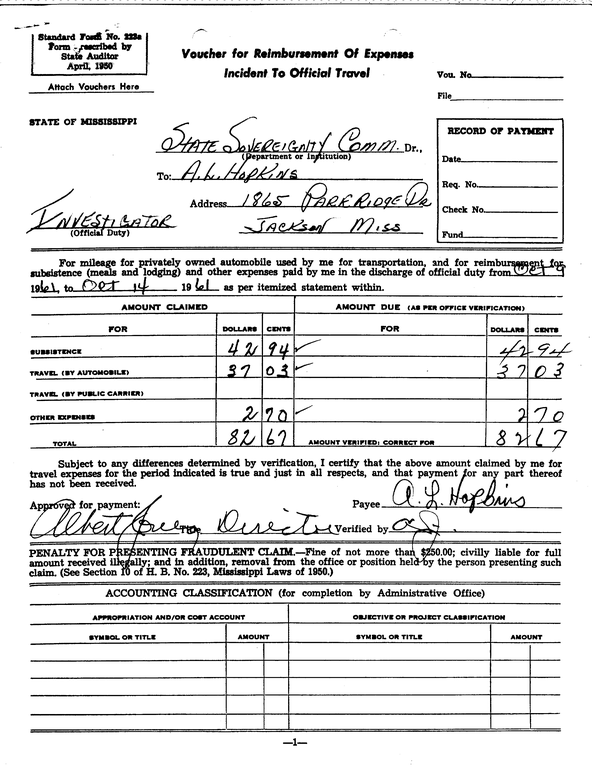 Standard Form No. 223a
Form Prescribed by
State Auditor
April, 1950
Attach Vouchers Here
Voucher for Reimbursement Of Expenses
Incident To Official Travel
Vou. No.
File
STATE OF MISSISSIPPI
STATE SOVEREIGNTY COMM. Dr.,
(Department or Institution)
To: A.L. HOPKINS
Address 1865 PARKRIDGE DR
JACKSON MISS
INVESTIGATOR
(Official Duty)
RECORD OF PAYMENT
Date
Req. No.
Check No.
Fund
For mileage for privately owned automobile used by me for transportation, and for reimbursement for
subsistence (meals and lodging) and other expenses paid by me in the discharge of official duty from OCT 9
1961, to OCT 14 1961 as per itemized statement within.
AMOUNT CLAIMED AMOUNT DUE (AS PER OFFICE VERIFICATION)
FOR DOLLARS CENTS FOR DOLLARS CENTS
SUBSISTENCE 42 94 42 94
TRAVEL (BY AUTOMOBILE) 37 03 37 03
TRAVEL (BY PUBLIC CARRIER)
OTHER EXPENSES 2 70 2 70
TOTAL 82 67 AMOUNT VERIFIED; CORRECT FOR 82 67
Subject to any differences determined by verification, I certify that the above amount claimed by me for
travel expenses for the period indicated is true and just in all respects, and that payment for any part thereof
has not been received.
Approved for payment: Payee A. L. Hopkins
Albert Director Verified by
PENALTY FOR PRESENTING FRAUDULENT CLAIM.—Fine of not more than $250.00; civilly liable for full
amount received illegally; and in addition, removal from the office or position held by the person presenting such
claim. (See Section 10 of H. B. No. 223, Mississippi Laws of 1950.)
ACCOUNTING CLASSIFICATION (for completion by Administrative Office)
APPROPRIATION AND/OR COST ACCOUNT OBJECTIVE OR PROJECT CLASSIFICATION
SYMBOL OR TITLE AMOUNT SYMBOL OR TITLE AMOUNT
—1—